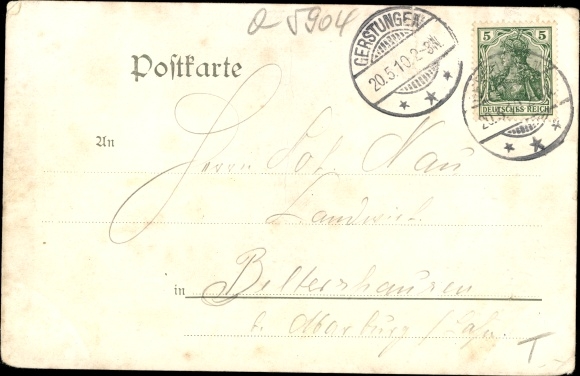 a 5904
GERSTUNGEN
20.5.10.2-3N.
5 5
DEUTSCHES REICH
Postkarte
An
Herrn Nau
Landwirt
in Beltershausen
b. Marburg / Lahn
T